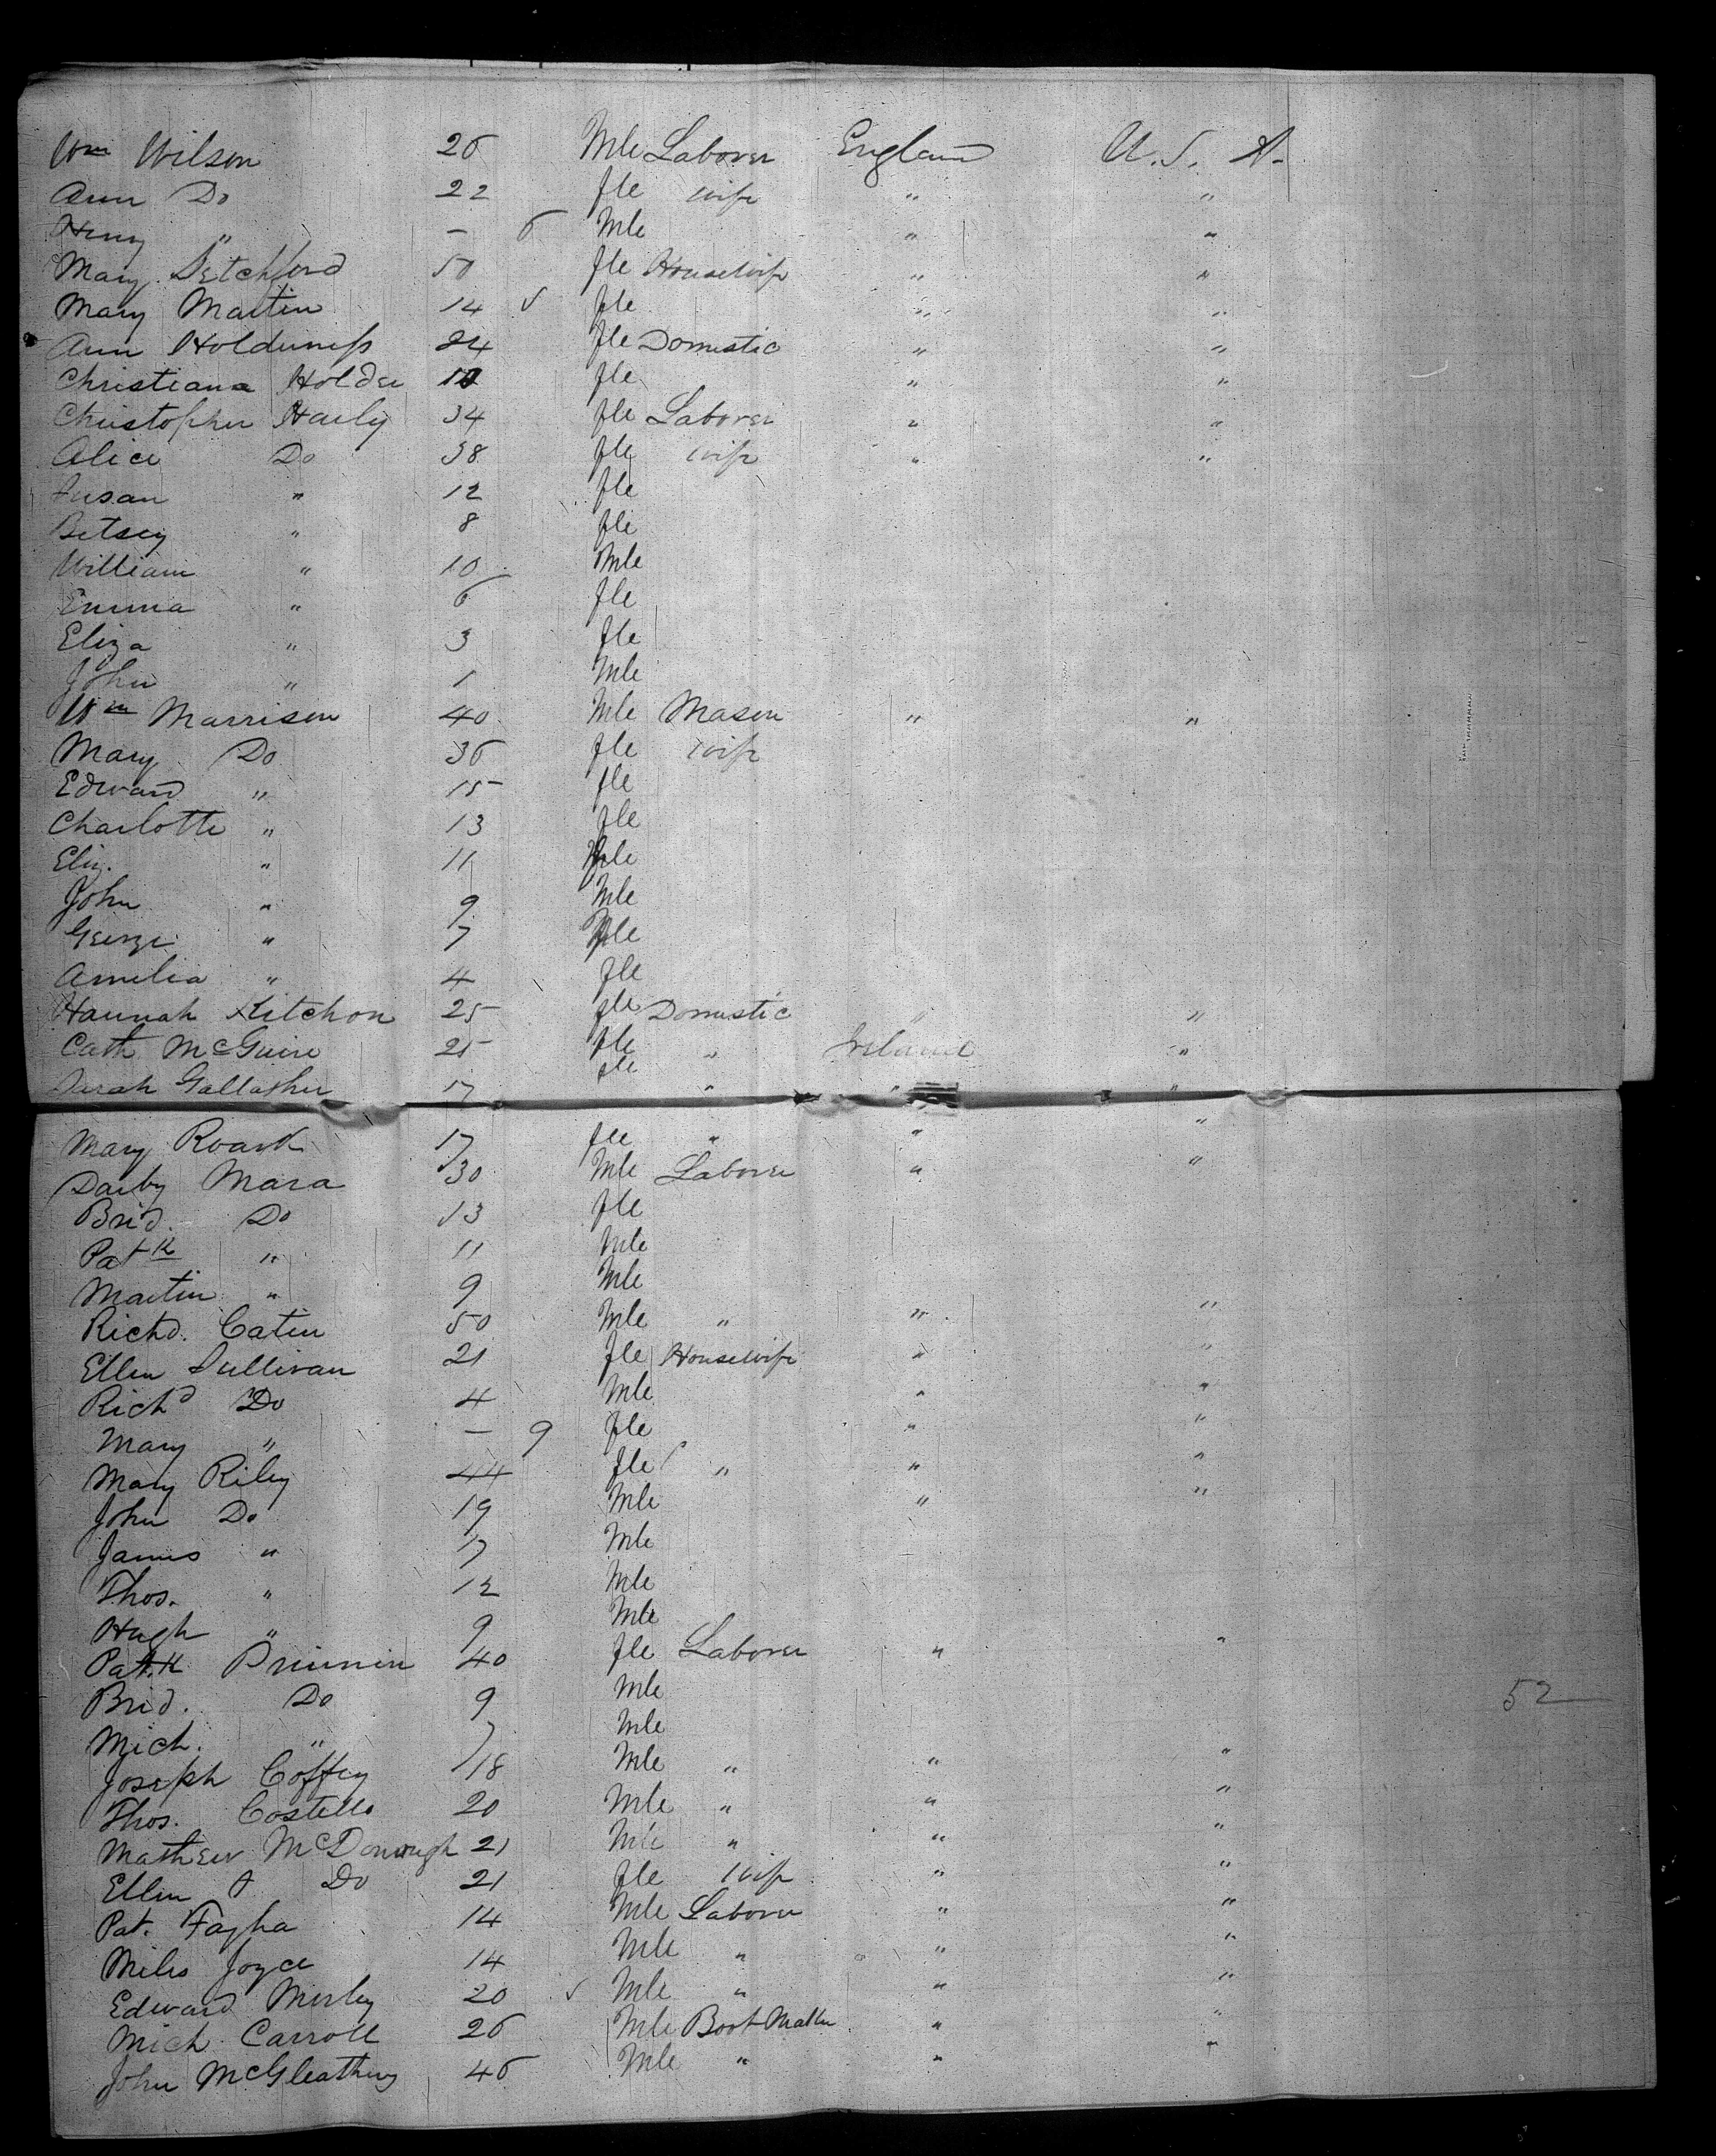 Wm Wilson 26 Mle Laborer England U. S. A.
Ann Do 22 fle wife " "
Henry " - 6 Mle " "
Mary Detchford 50 fle Housewife " "
Mary Martin 14 fle " "
Ann Holderness 24 fle Domestic " "
Christiana Holder 10 fle " "
Christopher Harly 34 fle Laborer " "
Alice Do 38 fle wife " "
Susan " 12 fle
Betsey " 8 fle
William " 10 Mle
Emma " 6 fle
Eliza " 3 fle
John " 1 Mle
Wm Marrison 40 Mle Mason " "
Mary Do 36 fle wife
Edward " 15 fle
Charlotte " 13 fle
Eliz. " 11 fle
John " 9 Mle
George " 7 Mle
Amelia " 4 fle
Hannah Kitchon 25 fle Domestic "
Cath McGuire 25 fle " Ireland "
Sarah Gallagher 17 fle " " "
Mary Roark 17 fle " " "
Darby Mara 30 Mle Laborer " "
Brid. Do 13 fle
Patk " 11 Mle
Martin " 9 Mle
Richd. Caten 50 Mle " " "
Ellen Sullivan 21 fle Housewife " "
Richd Do 4 Mle " "
Mary " - 9 fle " "
Mary Riley 44 fle " " "
John Do 19 Mle " "
James " 17 Mle
Thos. " 12 Mle
Hugh " 9 Mle
Pat.k 40 fle Laborer " "
Brid. Do 9 Mle 52
Mich. " 7 Mle
Joseph Coffey 18 Mle " " "
Thos. Costello 20 Mle " " "
Mathew McDonough 21 Mle " " "
Ellen Do 21 fle Wife " "
Pat. Fagha 14 Mle Laborer " "
Miles Joyce 14 Mle " " "
Edward Morley 20 Mle " " "
Mich Carroll 26 Mle Boot Maker " "
John McGleathing 46 Mle " " "